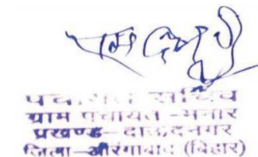 पंचायत सचिव
ग्राम पंचायत-मनार
प्रखण्ड-दाऊदनगर
जिला-औरंगाबाद (बिहार)